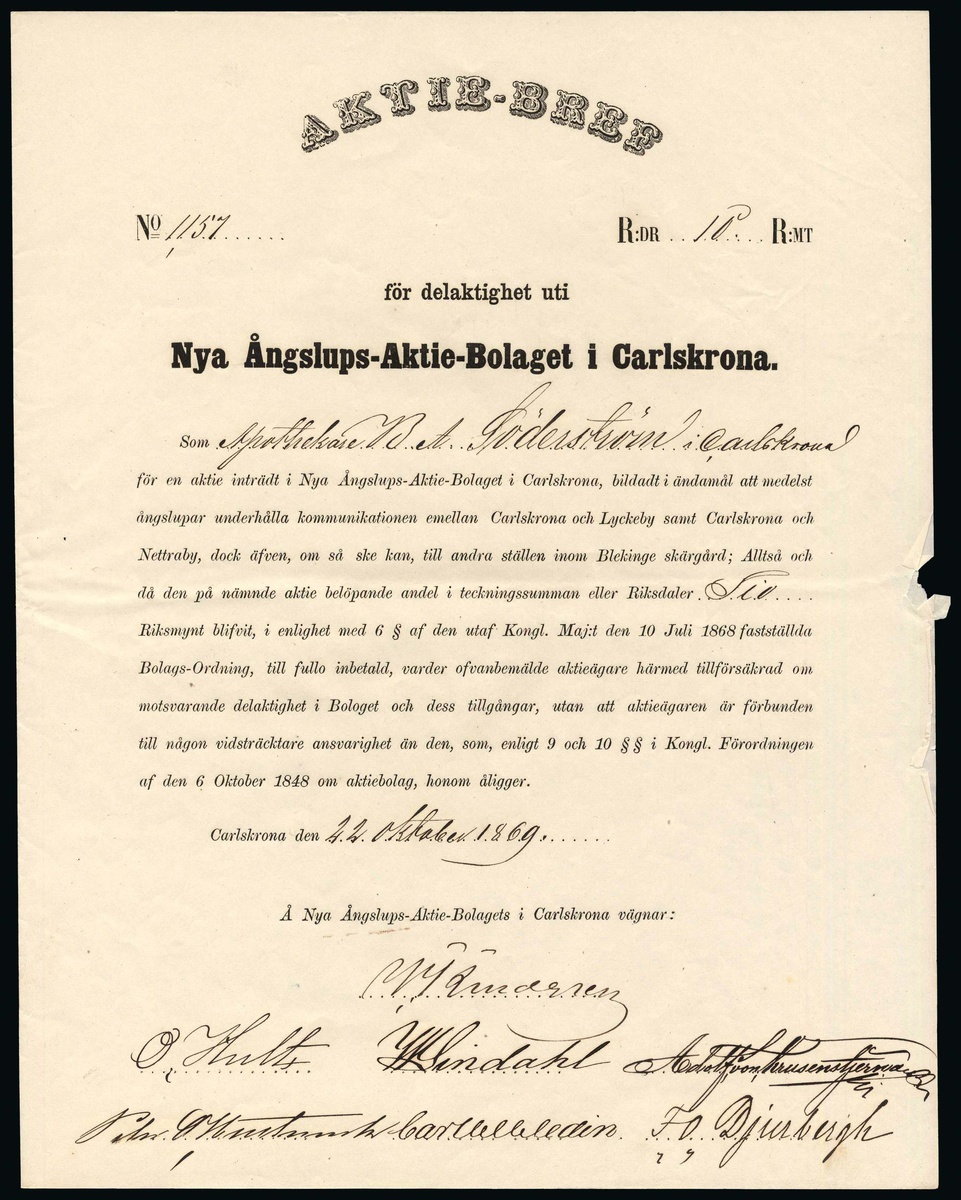 AKTIE-BREF
No 1157 R:DR 10 R:MT
för delaktighet uti
Nya Ångslups-Aktie-Bolaget i Carlskrona.
Som Apothekare A. Söderström i Carlskrona
för en aktie inträdt i Nya Ångslups-Aktie-Bolaget i Carlskrona, bildadt i ändamål att medelst
ångslupar underhålla kommunikationen emellan Carlskrona och Lyckeby samt Carlskrona och
Nettraby, dock äfven, om så ske kan, till andra ställen inom Blekinge skärgård; Alltså och
då den på nämnde aktie belöpande andel i teckningssumman eller Riksdaler Tio
Riksmynt blifvit, i enlighet med 6 § af den utaf Kongl. Maj:t den 10 Juli 1868 fastställda
Bolags-Ordning, till fullo inbetald, varder ofvanbemälde aktieägare härmed tillförsäkrad om
motsvarande delaktighet i Bologet och dess tillgångar, utan att aktieägaren är förbunden
till någon vidsträcktare ansvarighet än den, som, enligt 9 och 10 § § i Kongl. Förordningen
af den 6 Oktober 1848 om aktiebolag, honom åligger.
Carlskrona den 22 Oktober 1869.
Å Nya Ångslups-Aktie-Bolagets i Carlskrona vägnar:
O, Hult Lindahl Adolf von Krusenstjerna
Carl Ledin. F. O. Djurbergh